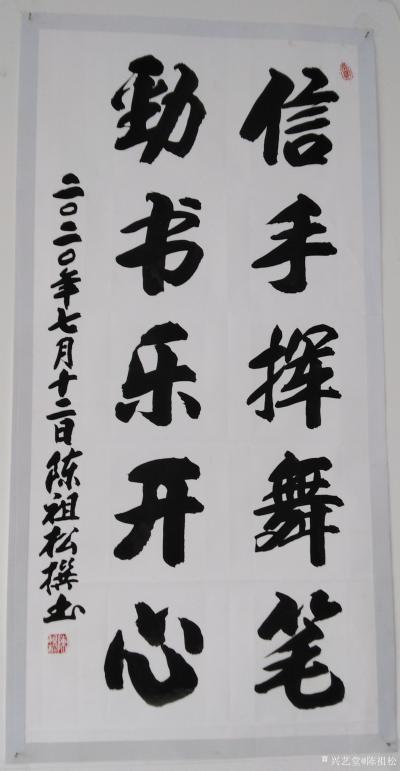 信手挥舞笔
勁书乐开心
二〇二〇年七月十二日陈祖松撰书
兴艺堂@陈祖松